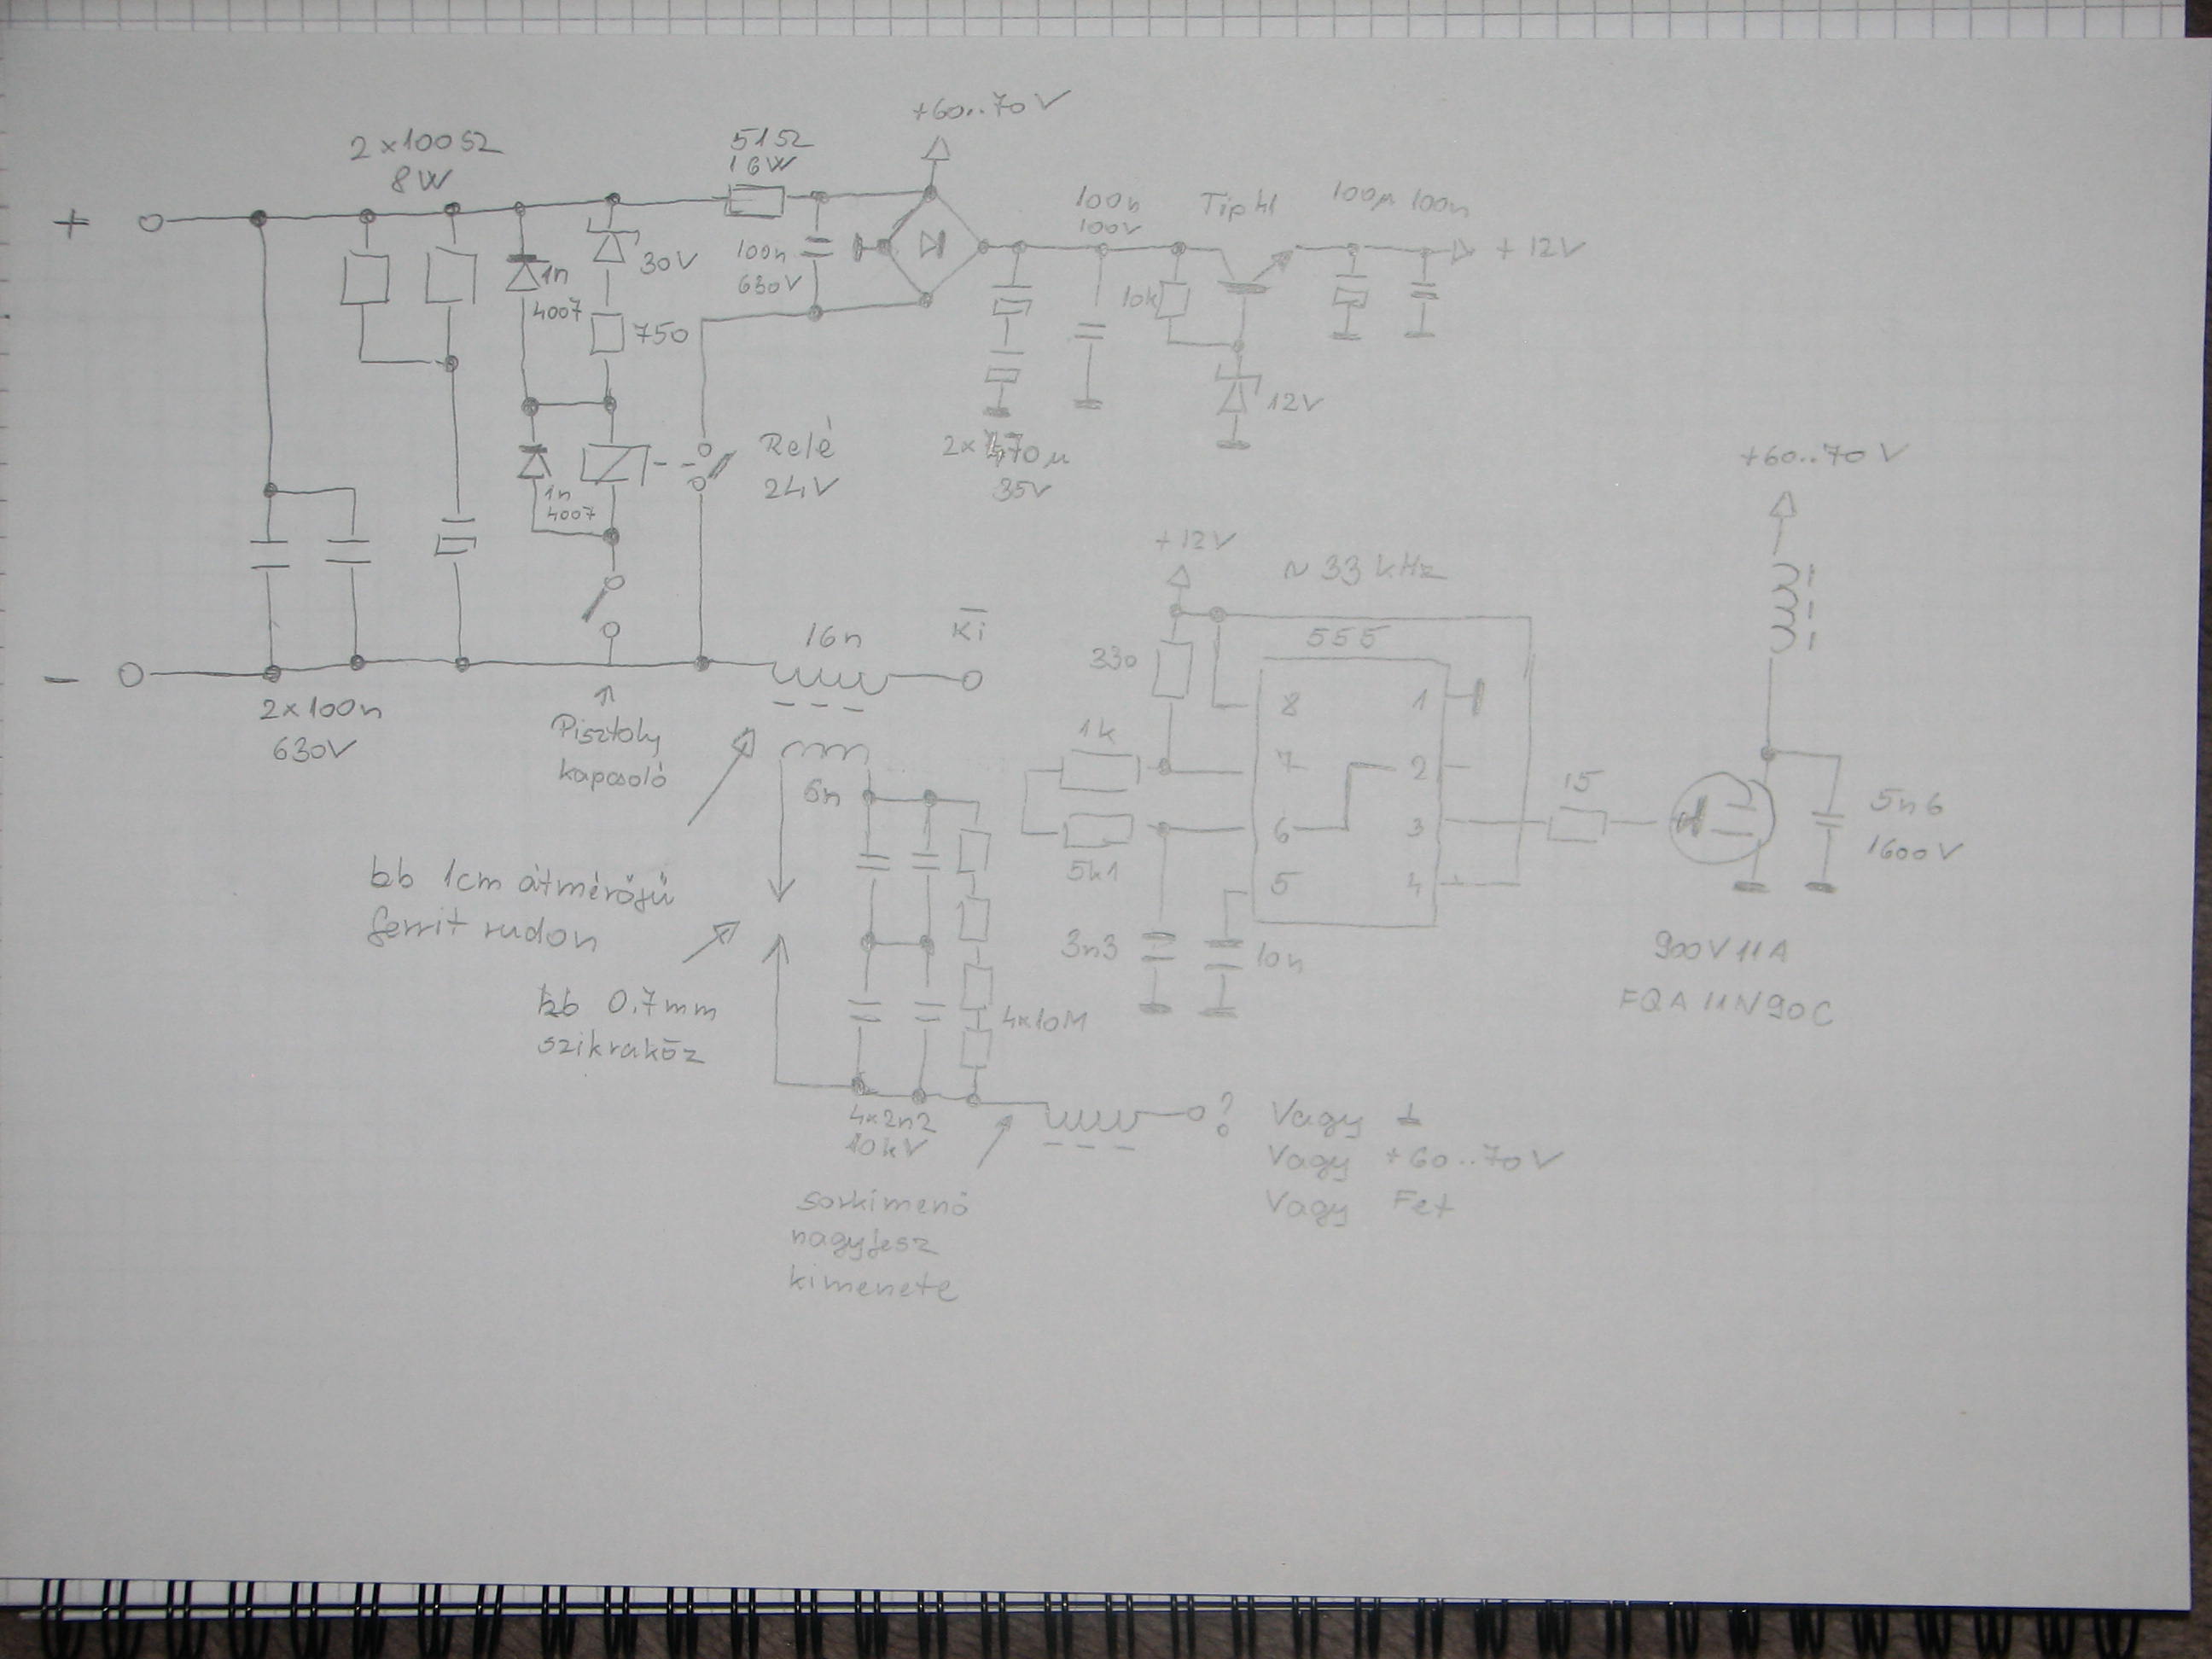 +60..70V
2×100Ω
8W
51Ω
16W
+
30V
1n
4007
750
100n
630V
100n
100V
Tip41
100µ 100n
+12V
10k
12V
Relé
24V
1n
4007
2×470µ
35V
+60..70V
+12V
~33kHz
555
330
1k
5k1
8
7
6
5
1
2
3
4
15
5n6
1600V
3n3
10n
900V 11A
FQA11N90C
-
2×100n
630V
Pisztoly
kapcsoló
16n
Ki
6n
kb 1cm átmérőjű
ferrit rudon
kb 0.7mm
szikraköz
4×10M
4×2n2
10kV
?
Vagy ⊥
Vagy +60..70V
Vagy Fet
sorkimenő
nagyfesz
kimenete